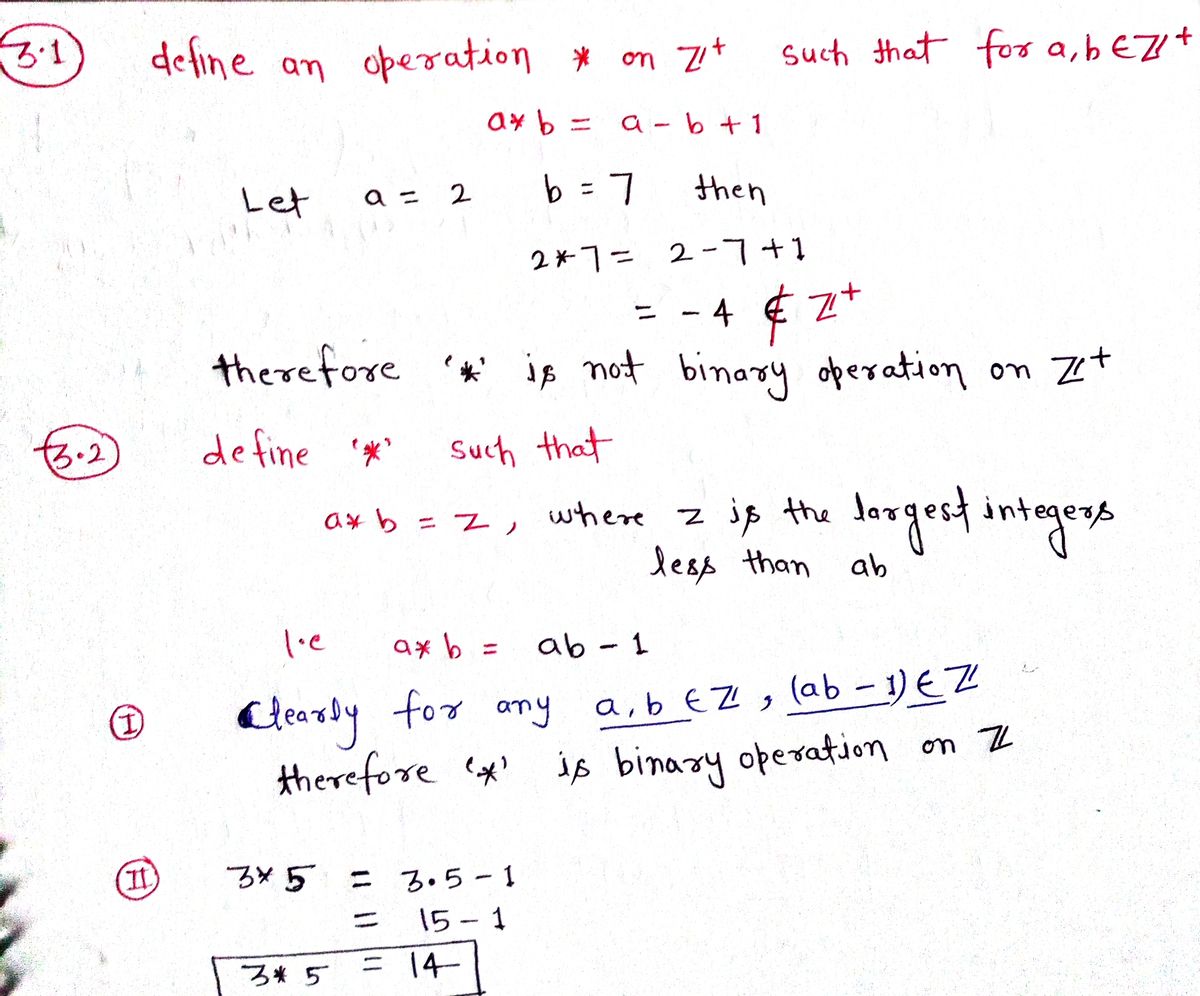 3.1 define an operation * on ℤ⁺ such that for a,b ∈ ℤ⁺
a*b = a-b+1
Let a = 2 b = 7 then
2*7 = 2-7+1
= -4 ∉ ℤ⁺
therefore '*' is not binary operation on ℤ⁺
3.2 define '*' such that
a*b = z, where z is the largest integers
less than ab
I.e a*b = ab-1
I Clearly for any a,b ∈ ℤ, (ab-1) ∈ ℤ
therefore '*' is binary operation on ℤ
II 3*5 = 3.5-1
= 15-1
3*5 = 14